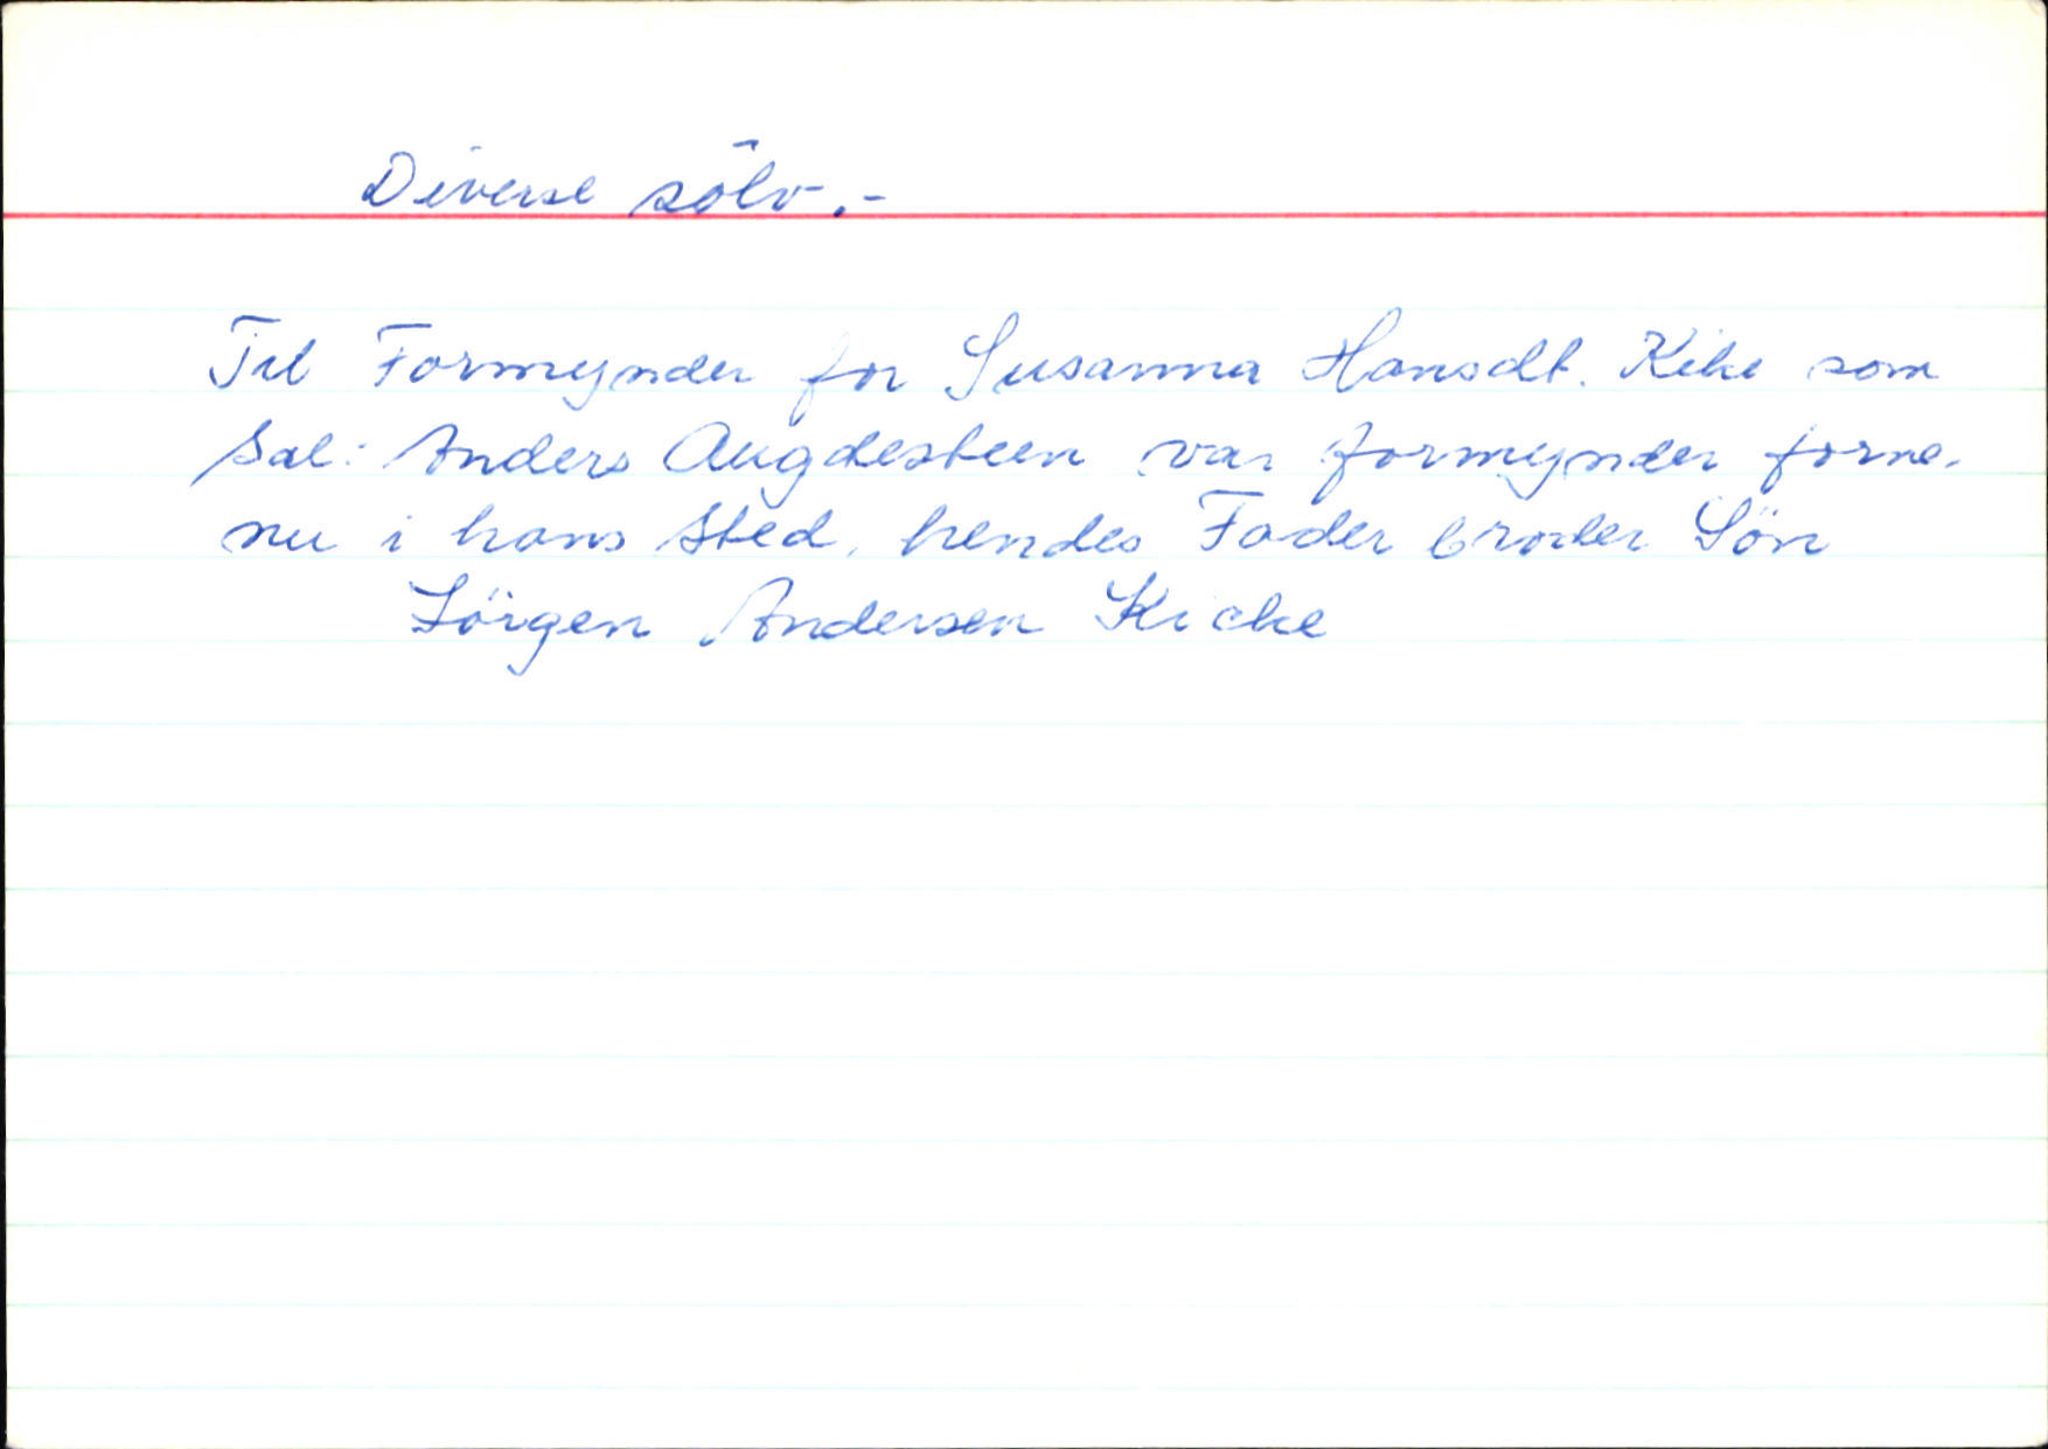 Diverse sölv.-
Til Formynder for Susanna Hansdt. Kike som
Sal: Anders Augdesteen var formynder forne.
nu i hans Sted, hendes Fader broder Sön
Jörgen Andersen Kicke